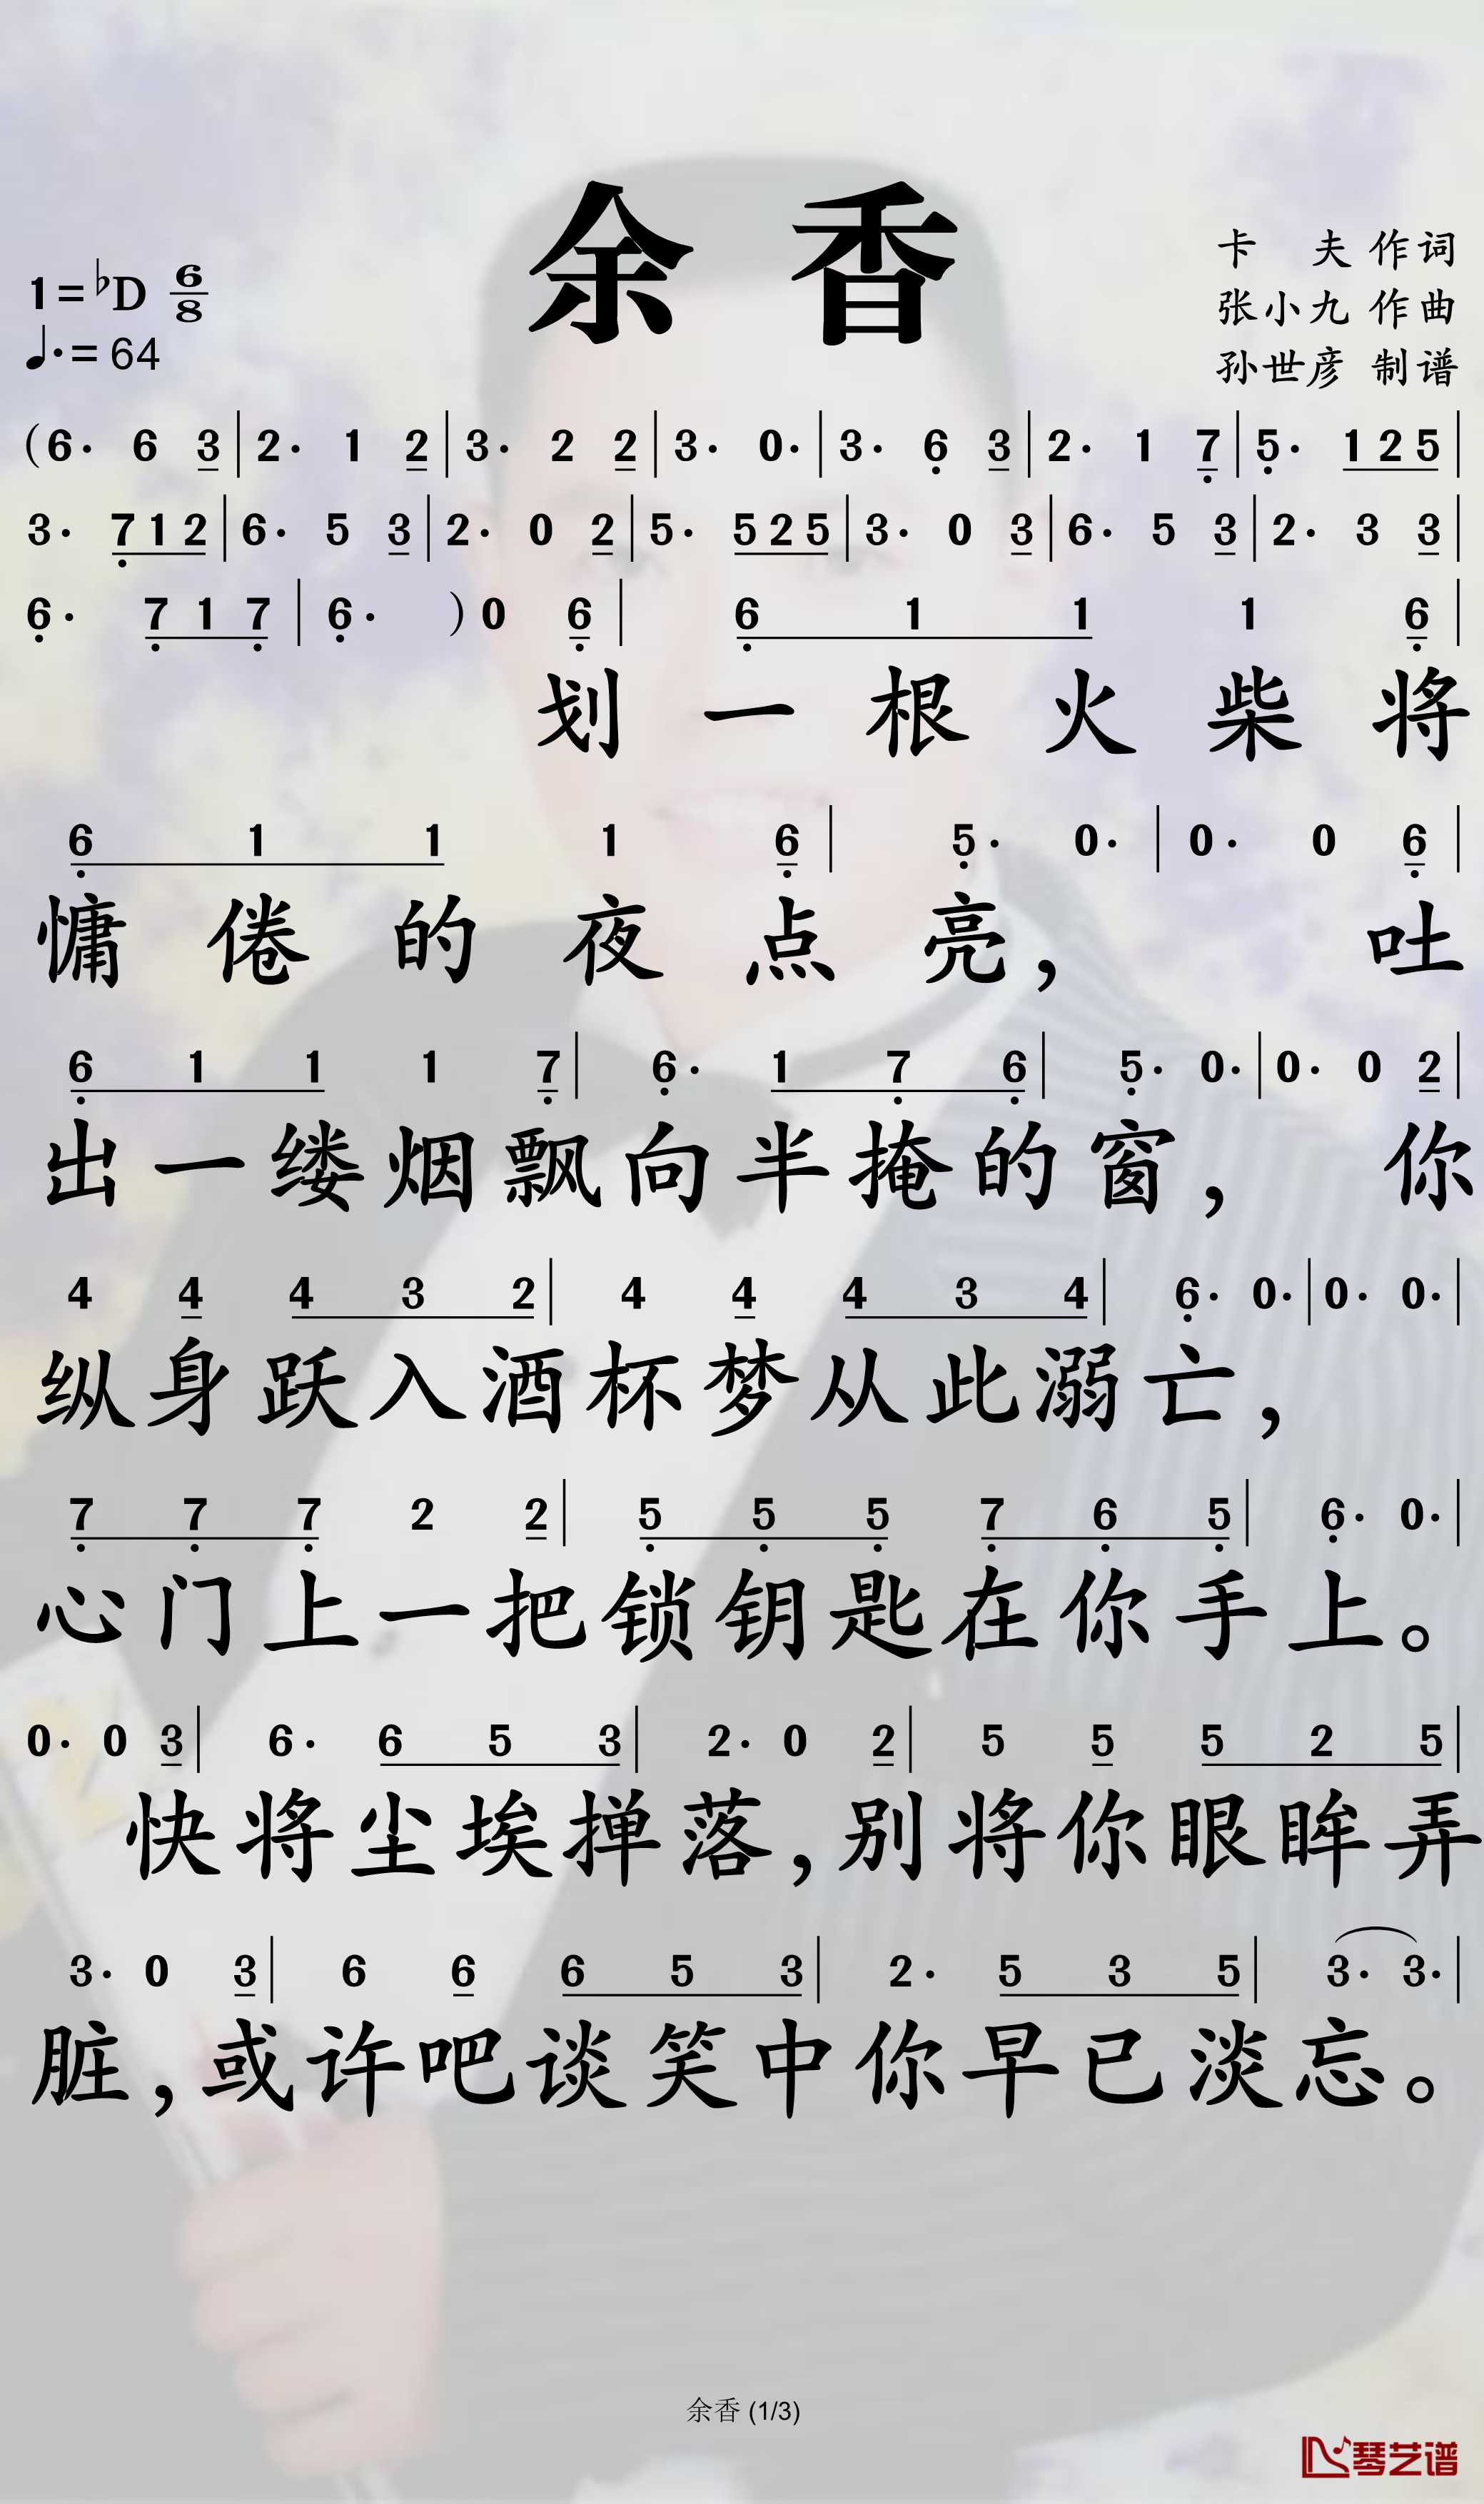 余香
卡 夫 作词
张小九 作曲
孙世彦 制谱
1=♭D 6/8
♩.=64
(6· 6 3|2· 1 2|3· 2 2|3· 0·|3· 6̣ 3|2· 1 7̣|5̣· 1 2 5|
3· 7̣ 1 2|6· 5 3|2· 0 2|5· 5 2 5|3· 0 3|6· 5 3|2· 3 3|
6̣· 7̣ 1 7̣|6̣· )0 6̣|6̣ 1 1 1 6̣|
划一根火柴将
6̣ 1 1 1 6̣|5̣· 0·|0· 0 6̣|
慵倦的夜点亮， 吐
6̣ 1 1 1 7̣|6̣· 1 7̣ 6̣|5̣· 0·|0· 0 2|
出一缕烟飘向半掩的窗， 你
4 4 4 3 2|4 4 4 3 4|6̣· 0·|0· 0·|
纵身跃入酒杯梦从此溺亡，
7̣ 7̣ 7̣ 2 2|5̣ 5̣ 5̣ 7̣ 6̣ 5̣|6̣· 0·|
心门上一把锁钥匙在你手上。
0· 0 3|6· 6 5 3|2· 0 2|5 5 5 2 5|
快将尘埃掸落，别将你眼眸弄
3· 0 3|6 6 6 5 3|2· 5 3 5|3· 3·|
脏，或许吧谈笑中你早已淡忘。
余香 (1/3)
琴艺谱